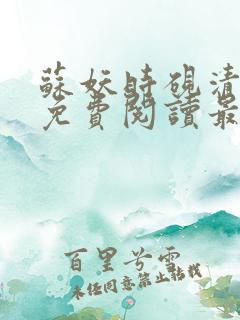 蘇妖時硯清
免費閱讀最
百里兮雲
未经同意禁止转载